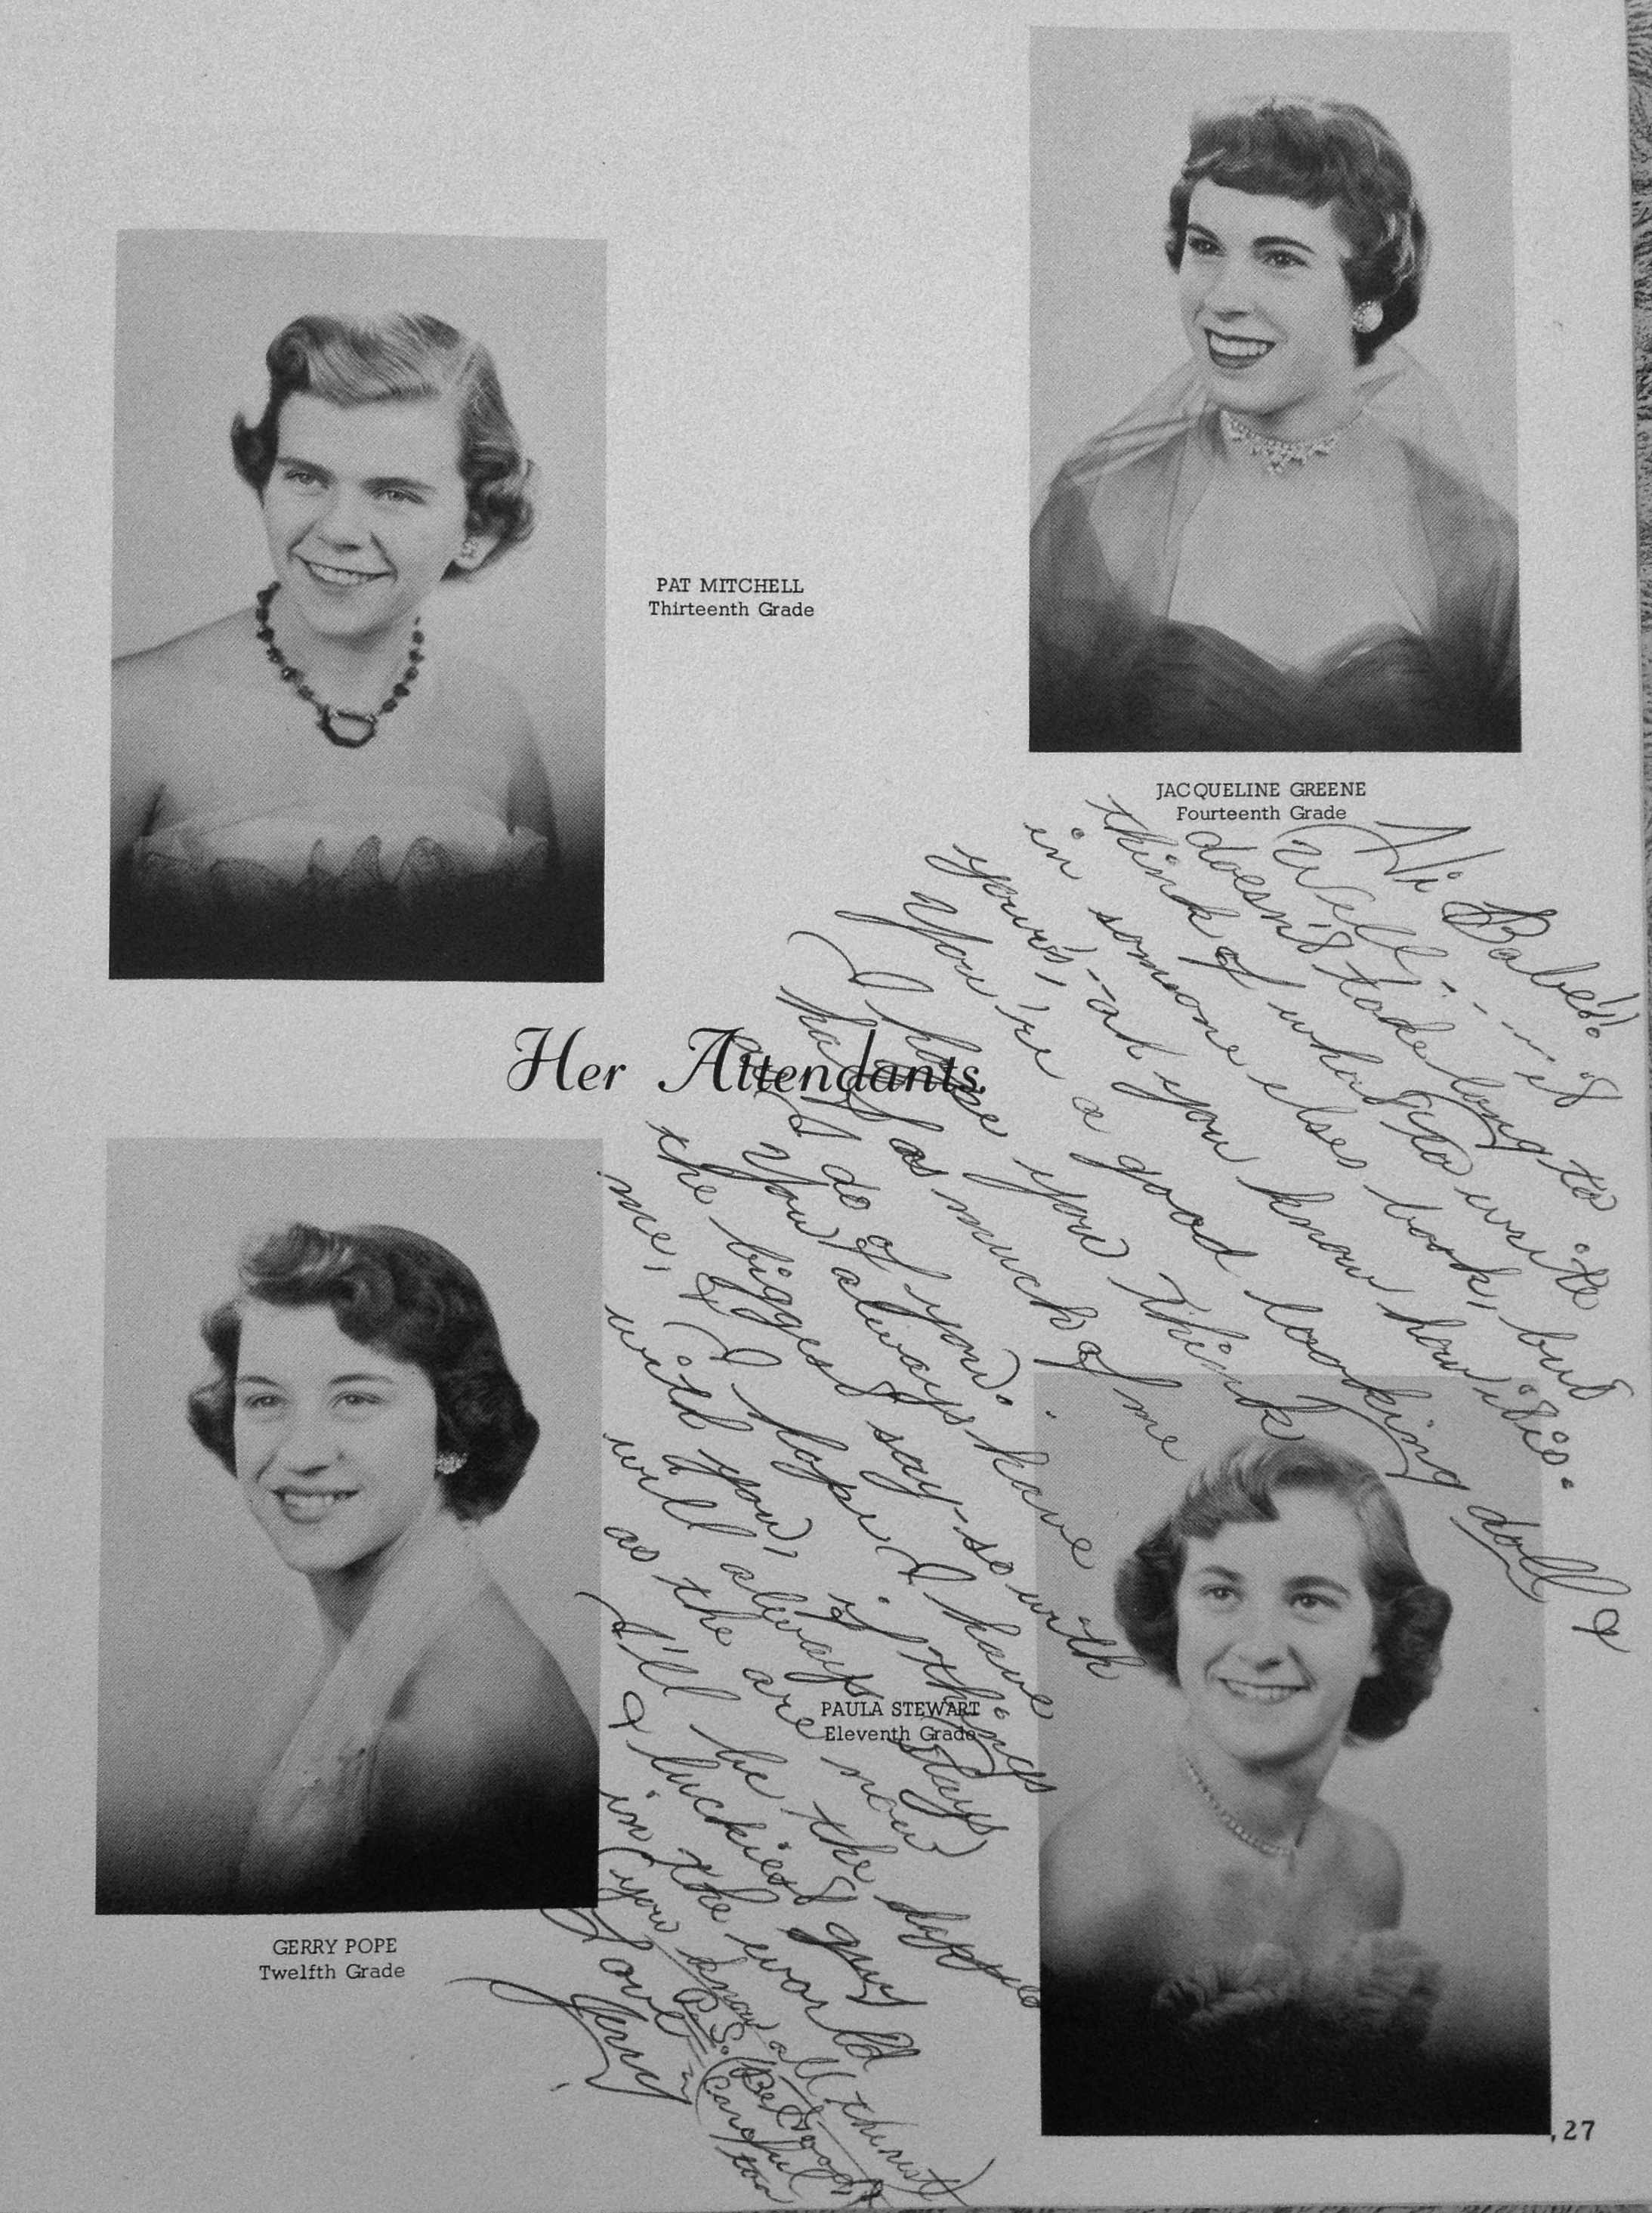 JACQUELINE GREENE
Fourteenth Grade
PAT MITCHELL
Thirteenth Grade
Her Attendants
PAULA STEWART
Eleventh Grade
GERRY POPE
Twelfth Grade
27
Hi Babe!!
Well---it
doesn't take long to
think of what to write
in someone elses book, but
your's,--ah you know how it is.
You're a good looking doll &
I hope you think
half as much of me
as I do of you.
You always have
the biggest say-so with
me, & I hope I have
with you, if things
will always stay
as the are now
I'll be the
& luckiest guy
in the world
(you know all the rest)
Love,
Jerry
P.S. (Be good &
careful
too